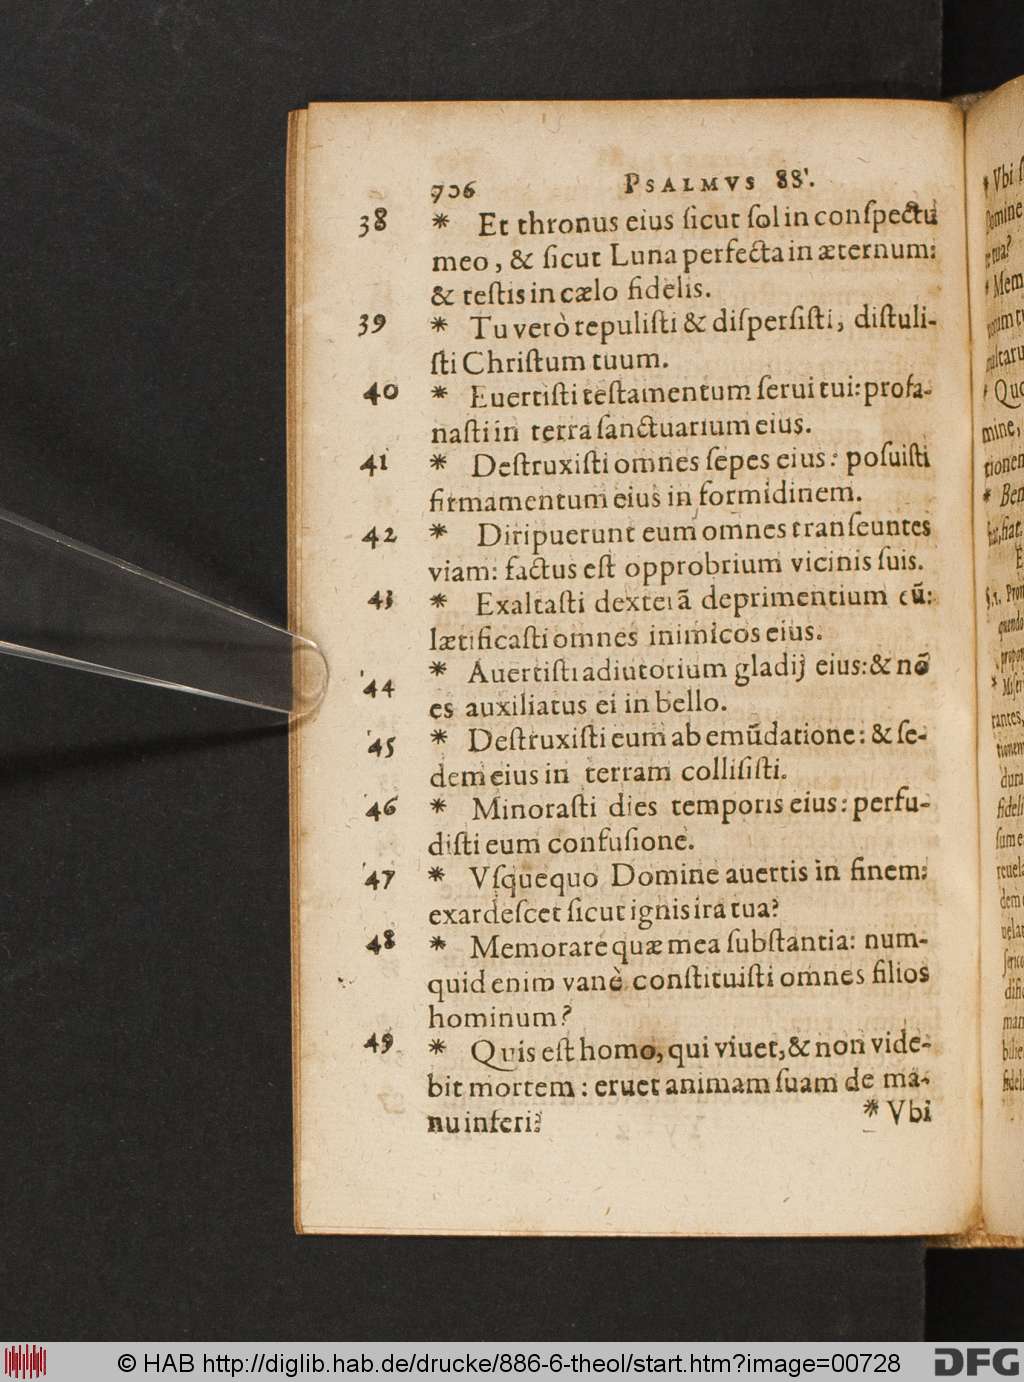 706 PSALMVS 88.
38 * Et thronus eius ſicut ſol in conſpectu
meo, & ſicut Luna perfecta in æternum:
& teſtis in cælo fidelis.
39 * Tu verò repuliſti & diſperſiſti, diſtuli-
ſti Chriſtum tuum.
40 * Euertiſti teſtamentum ſerui tui: profa-
naſti in terra ſanctuarium eius.
41 * Deſtruxiſti omnes ſepes eius: poſuiſti
firmamentum eius in formidinem.
42 * Diripuerunt eum omnes tranſeuntes
viam: factus eſt opprobrium vicinis ſuis.
43 * Exaltaſti dexterã deprimentium eũ:
lætificaſti omnes inimicos eius.
44 * Auertiſti adiutorium gladij eius: & nõ
es auxiliatus ei in bello.
45 * Deſtruxiſti eum ab emũdatione: & ſe-
dem eius in terram colliſiſti.
46 * Minoraſti dies temporis eius: perfu-
diſti eum confuſione.
47 * Vſquequo Domine auertis in finem:
exardeſcet ſicut ignis ira tua?
48 * Memorare quæ mea ſubſtantia: num-
quid enim vanè conſtituiſti omnes filios
hominum?
49 * Quis eſt homo, qui viuet, & non vide-
bit mortem: eruet animam ſuam de ma-
nu inferi?
* Vbi
* Vbi
Domine
tua?
* Mem
* Quo
mine,
tionem
* Ben
fiat.
© HAB http://diglib.hab.de/drucke/886-6-theol/start.htm?image=00728
DFG